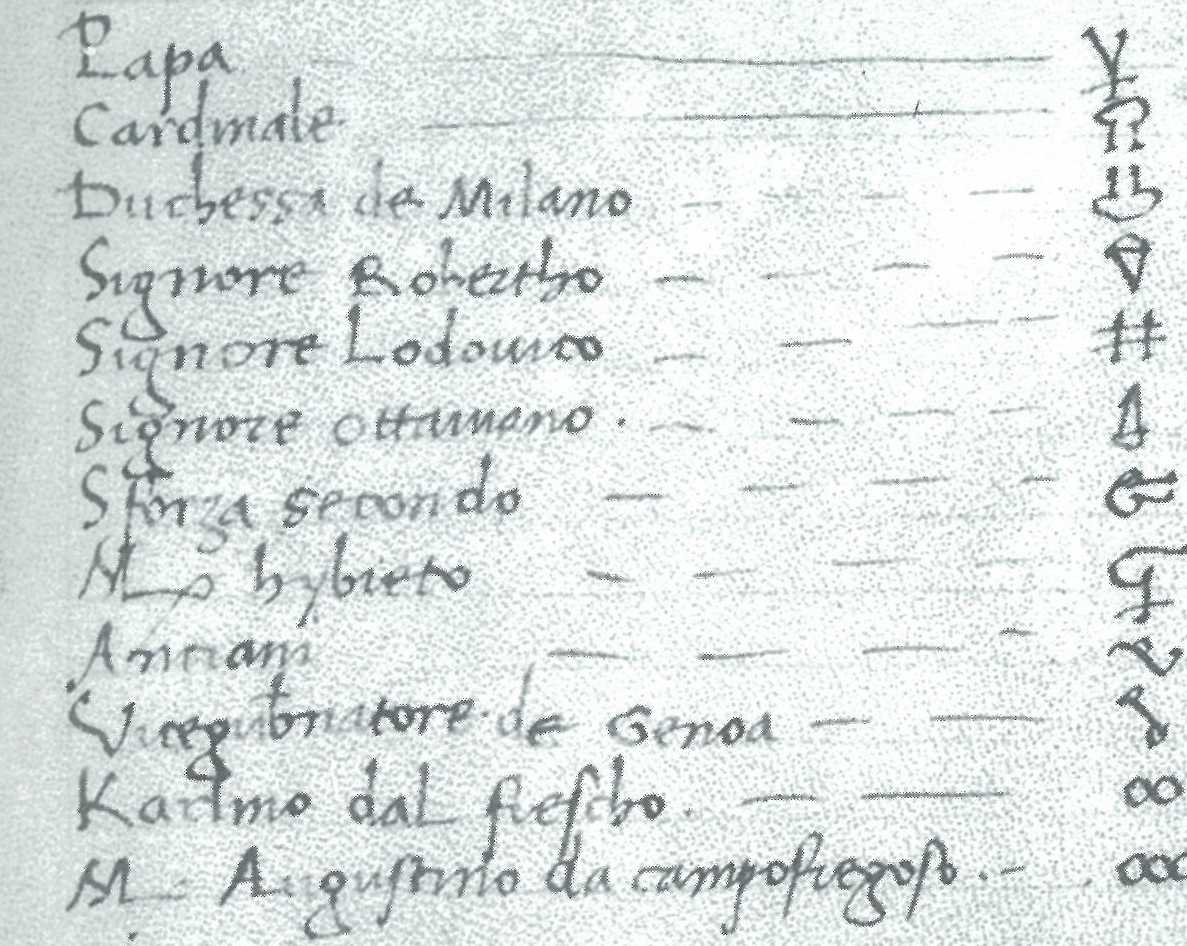 Papa
Cardinale
Duchessa de Milano
Signore Robertho
Signore Lodouico
Signore ottauiano.
Sforza secondo
M hybieto
Antiani
Vicegubnatore de Genoa
Karlino dal fiescho.
M Augustino da campofregoso.